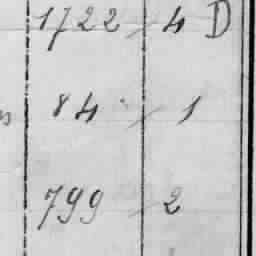 1722 4 D
84 1
799 2